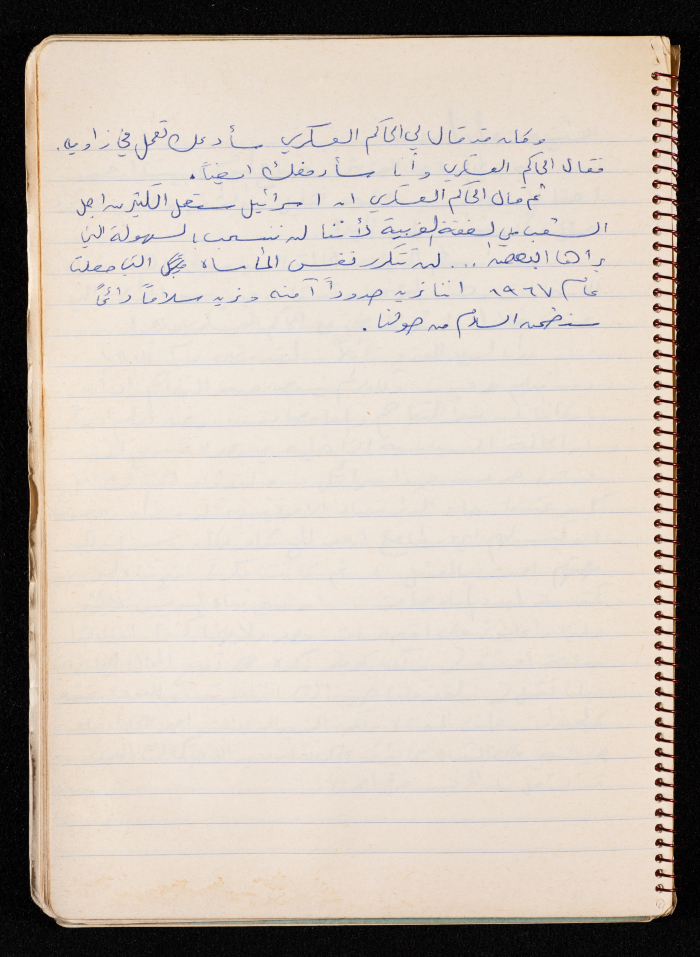 وكان قد قال لي الحاكم العسكري سأدعك تعمل في زاوية.
فقال الحاكم العسكري وأنا سأرفضك ايضاً.
ثم قال الحاكم العسكري ان اسرائيل ستعمل الكثير من اجل
الشعب في الضفة الغربية لأننا لن ننسحب بالسهولة التي
يراها البعض ... لن تتكرر نفس المأساة التي حصلت
عام ١٩٦٧ اننا نريد حدوداً آمنه ونريد سلاماً دائماً
سنضمن السلام من